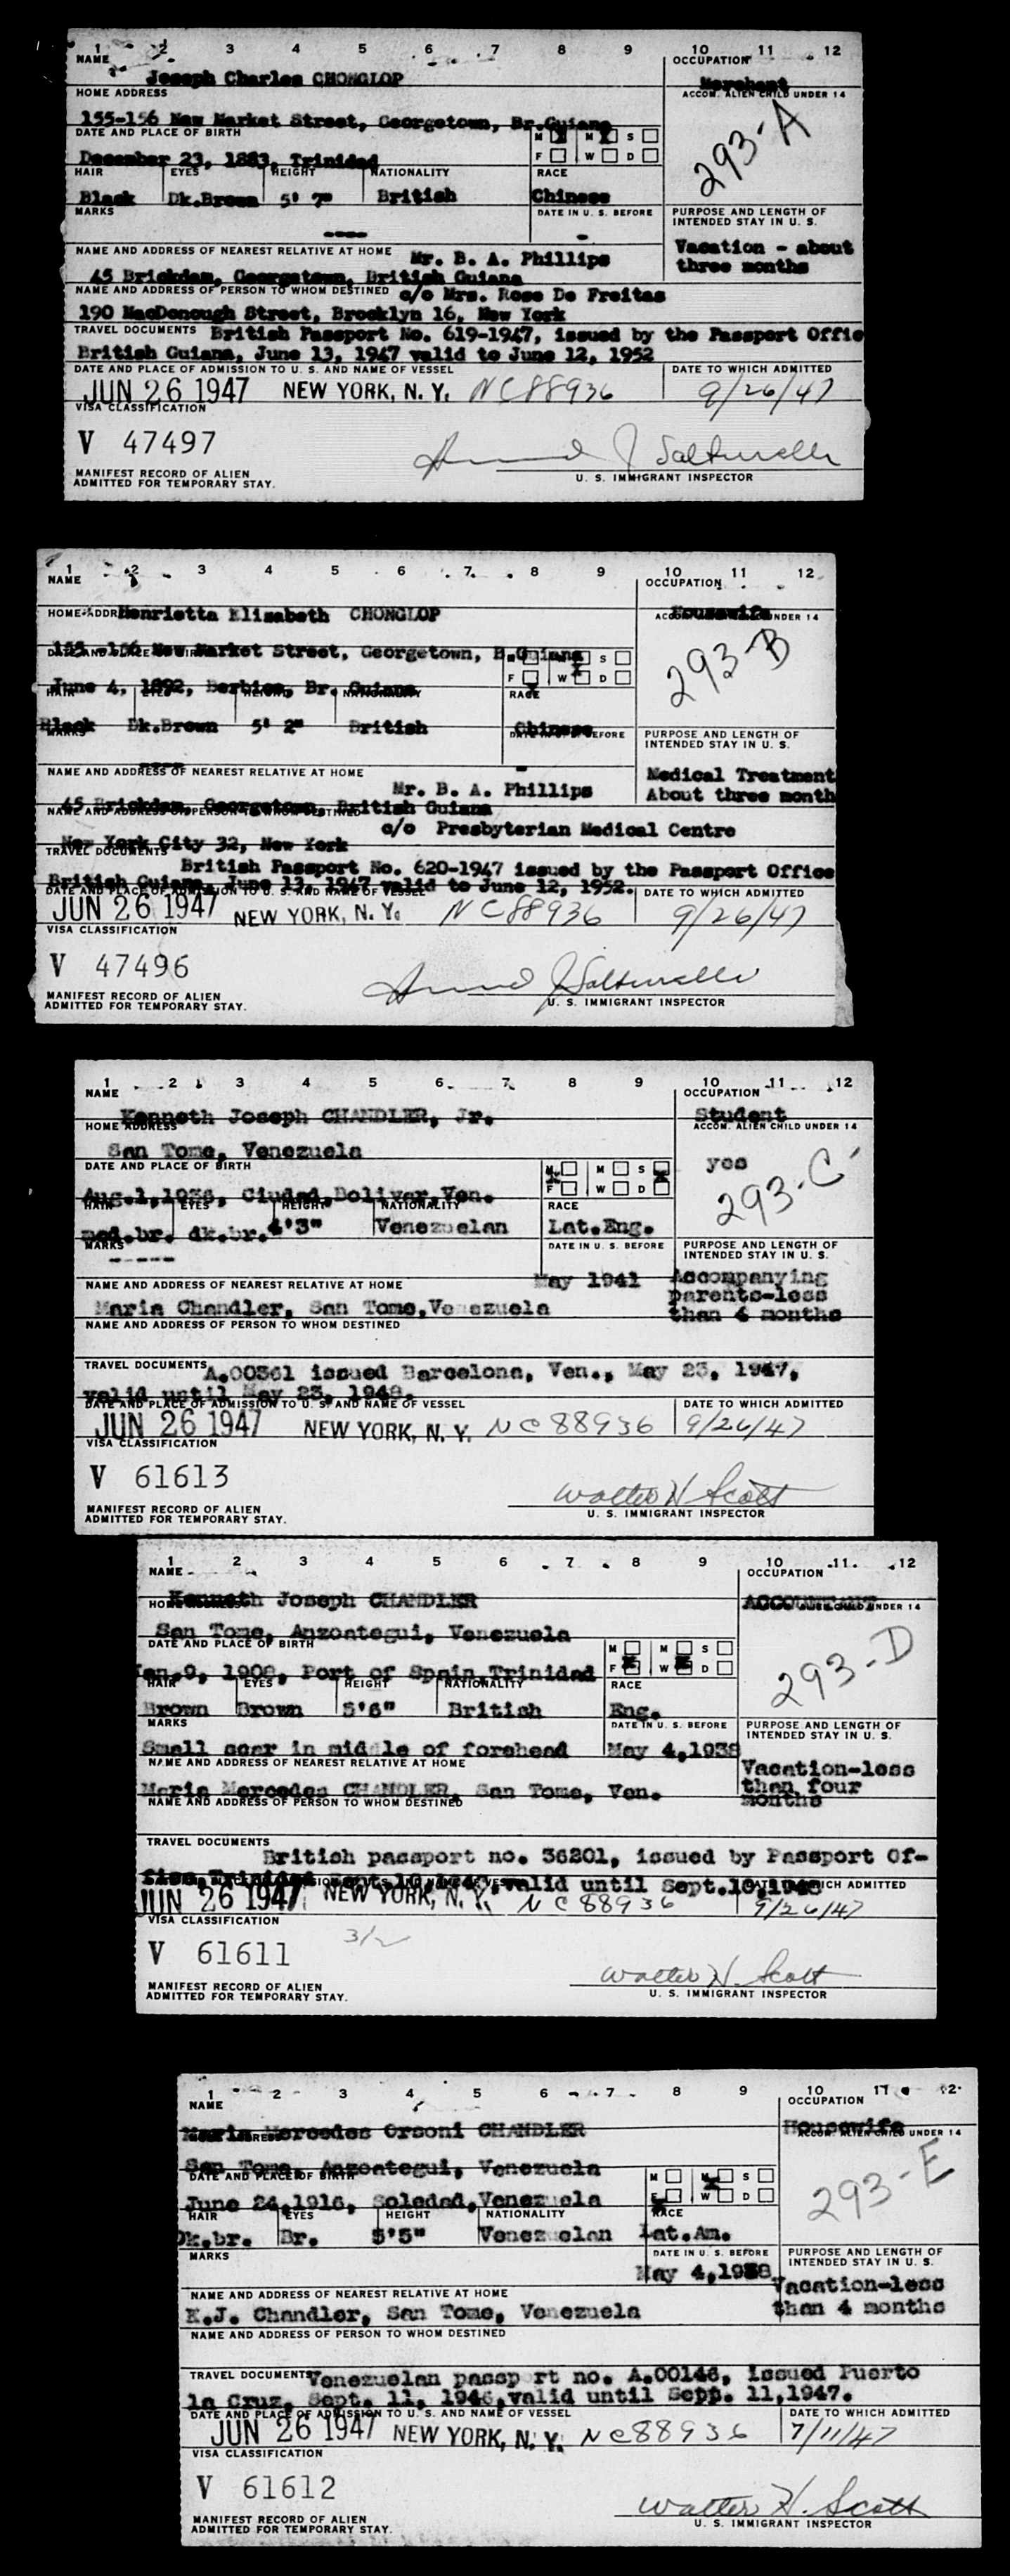 1 2 3 4 5 6 7 8 9 10 11 12
NAME OCCUPATION
Joseph Charles CHONGLOP Merchant
HOME ADDRESS ACCOM. ALIEN CHILD UNDER 14
155-156 New Market Street, Georgetown, Br.Guiana
293-A
DATE AND PLACE OF BIRTH M M S
F W D
December 23, 1883, Trinidad
HAIR EYES HEIGHT NATIONALITY RACE
Black Dk.Brown 5' 7" British Chinese
MARKS DATE IN U. S. BEFORE PURPOSE AND LENGTH OF
INTENDED STAY IN U. S.
---- -
NAME AND ADDRESS OF NEAREST RELATIVE AT HOME Mr. B. A. Phillips Vacation - about
three months
45 Brickdam, Georgetown, British Guiana
NAME AND ADDRESS OF PERSON TO WHOM DESTINED c/o Mrs. Rose De Freitas
190 MacDonough Street, Brooklyn 16, New York
TRAVEL DOCUMENTS British Passport No. 619-1947, issued by the Passport Offic
British Guiana, June 13, 1947 valid to June 12, 1952
DATE AND PLACE OF ADMISSION TO U. S. AND NAME OF VESSEL DATE TO WHICH ADMITTED
JUN 26 1947 NEW YORK, N. Y. NC88936 9/26/47
VISA CLASSIFICATION
V 47497
MANIFEST RECORD OF ALIEN
ADMITTED FOR TEMPORARY STAY. U. S. IMMIGRANT INSPECTOR
1 2 3 4 5 6 7 8 9 10 11 12
NAME OCCUPATION
HOME ADDR Henrietta Elizabeth CHONGLOP Housewife UNDER 14
155-156 New Market Street, Georgetown, B.Guiana
293-B
S
F W D
June 4, 1892, Berbice, Br. Guiana
RACE
Black Dk.Brown 5' 2" British Chinese
MARKS BEFORE PURPOSE AND LENGTH OF
INTENDED STAY IN U. S.
NAME AND ADDRESS OF NEAREST RELATIVE AT HOME - Medical Treatment
Mr. B. A. Phillips About three month
45 Brickdam, Georgetown, British Guiana
NAME AND ADDRESS OF PERSON TO WHOM DESTINED c/o Presbyterian Medical Centre
New York City 32, New York
TRAVEL DOCUMENTS
British Passport No. 620-1947 issued by the Passport Office
British Guiana, June 13, 1947 valid to June 12, 1952.
DATE AND PLACE OF ADMISSION TO U. S. AND NAME OF VESSEL DATE TO WHICH ADMITTED
JUN 26 1947 NEW YORK, N. Y. NC88936 9/26/47
VISA CLASSIFICATION
V 47496
MANIFEST RECORD OF ALIEN
ADMITTED FOR TEMPORARY STAY. U. S. IMMIGRANT INSPECTOR
1 2 3 4 5 6 7 8 9 10 11 12
NAME OCCUPATION
Kenneth Joseph CHANDLER, Jr. Student
HOME ADDRESS ACCOM. ALIEN CHILD UNDER 14
San Tome, Venezuela yes
293-C
DATE AND PLACE OF BIRTH M M S
F W D
Aug.1,1938, Ciudad Bolivar,Ven.
HAIR EYES HEIGHT NATIONALITY RACE
med.br. dk.br. 4'3" Venezuelan Lat.Eng.
MARKS DATE IN U. S. BEFORE PURPOSE AND LENGTH OF
INTENDED STAY IN U. S.
-----
NAME AND ADDRESS OF NEAREST RELATIVE AT HOME May 1941 Accompanying
parents-less
than 4 months
Maria Chandler, San Tome,Venezuela
NAME AND ADDRESS OF PERSON TO WHOM DESTINED
TRAVEL DOCUMENTS A.00361 issued Barcelona, Ven., May 23, 1947,
valid until May 23, 1948.
DATE AND PLACE OF ADMISSION TO U. S. AND NAME OF VESSEL DATE TO WHICH ADMITTED
JUN 26 1947 NEW YORK, N. Y. NC88936 9/26/47
VISA CLASSIFICATION
V 61613
Walter H Scott
MANIFEST RECORD OF ALIEN
ADMITTED FOR TEMPORARY STAY. U. S. IMMIGRANT INSPECTOR
1 2 3 4 5 6 7 8 9 10 11 12
NAME OCCUPATION
Kenneth Joseph CHANDLER ACCOUNTANT
HOME ADDRESS UNDER 14
San Tome, Anzoategui, Venezuela
293-D
DATE AND PLACE OF BIRTH M M S
F W D
Jan.9, 1908, Port of Spain,Trinidad
HAIR EYES HEIGHT NATIONALITY RACE
Brown Brown 5'6" British Eng.
MARKS DATE IN U. S. BEFORE PURPOSE AND LENGTH OF
INTENDED STAY IN U. S.
Small scar in middle of forehead May 4,1938
NAME AND ADDRESS OF NEAREST RELATIVE AT HOME Vacation-less
than four
months
Maria Mercedes CHANDLER, San Tome, Ven.
NAME AND ADDRESS OF PERSON TO WHOM DESTINED
TRAVEL DOCUMENTS
British passport no. 36201, issued by Passport Of-
fice, Trinidad valid until Sept.10,1948
WHICH ADMITTED
JUN 26 1947 NEW YORK, N. Y. NC88936 9/26/47
VISA CLASSIFICATION
V 61611 3/2
Walter H. Scott
MANIFEST RECORD OF ALIEN
ADMITTED FOR TEMPORARY STAY. U. S. IMMIGRANT INSPECTOR
1 2 3 4 5 6 7 8 9 10 11 12
NAME OCCUPATION
Maria Mercedes Orsoni CHANDLER Housewife
ACCOM. ALIEN CHILD UNDER 14
San Tome, Anzoategui, Venezuela
293-E
DATE AND PLACE OF BIRTH M M S
F W D
June 24,1916, Soledad,Venezuela
HAIR EYES HEIGHT NATIONALITY RACE
Dk.br. Br. 5'5" Venezuelan Lat.Am.
MARKS DATE IN U. S. BEFORE PURPOSE AND LENGTH OF
INTENDED STAY IN U. S.
May 4,1938
NAME AND ADDRESS OF NEAREST RELATIVE AT HOME Vacation-less
than 4 months
K.J. Chandler, San Tome, Venezuela
NAME AND ADDRESS OF PERSON TO WHOM DESTINED
TRAVEL DOCUMENTS Venezuelan passp rt no. A.00146, issued Puerto
la Cruz, Sept. 11, 1946,valid until Sept. 11,1947.
DATE AND PLACE OF ADMISSION TO U. S. AND NAME OF VESSEL DATE TO WHICH ADMITTED
JUN 26 1947 NEW YORK, N. Y. NC88936 7/11/47
VISA CLASSIFICATION
V 61612
Walter H. Scott
MANIFEST RECORD OF ALIEN
ADMITTED FOR TEMPORARY STAY. U. S. IMMIGRANT INSPECTOR